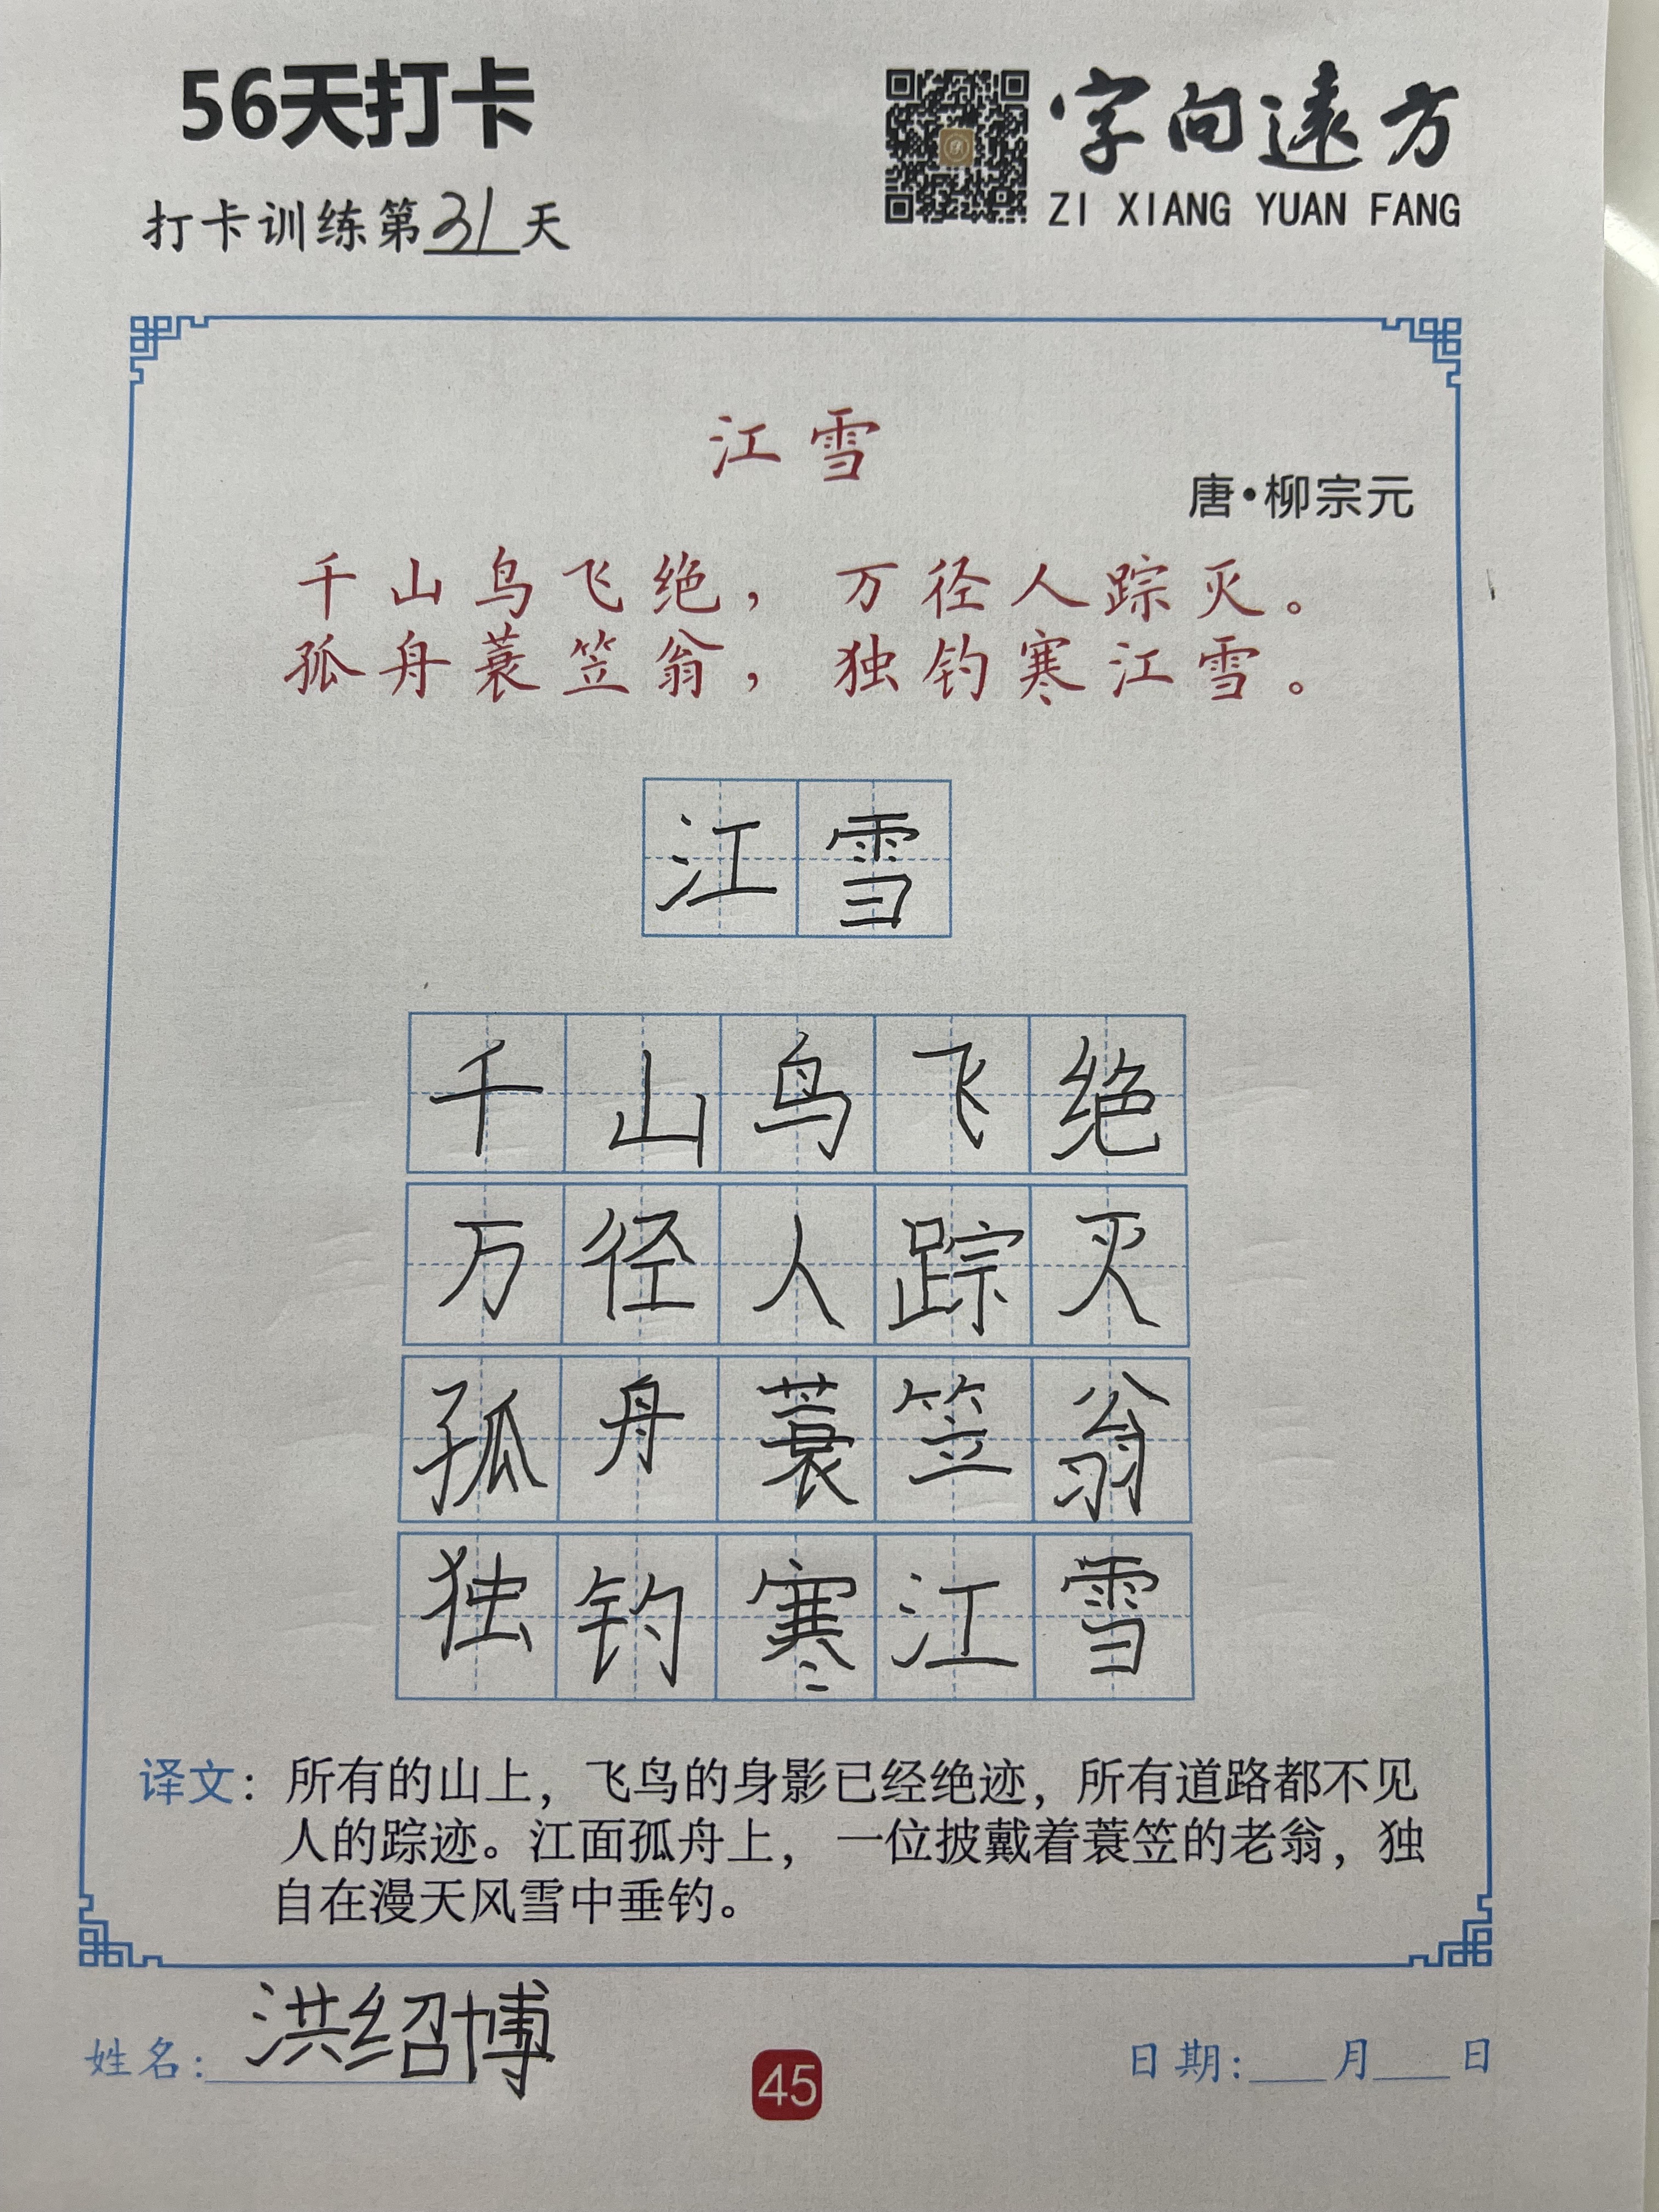 56天打卡
字向遠方
ZI XIANG YUAN FANG
打卡训练第31天
江雪
唐·柳宗元
千山鸟飞绝，万径人踪灭。
孤舟蓑笠翁，独钓寒江雪。
江雪
千山鸟飞绝
万径人踪灭
孤舟蓑笠翁
独钓寒江雪
译文：所有的山上，飞鸟的身影已经绝迹，所有道路都不见
人的踪迹。江面孤舟上，一位披戴着蓑笠的老翁，独
自在漫天风雪中垂钓。
姓名：洪绍博
45
日期：___月___日